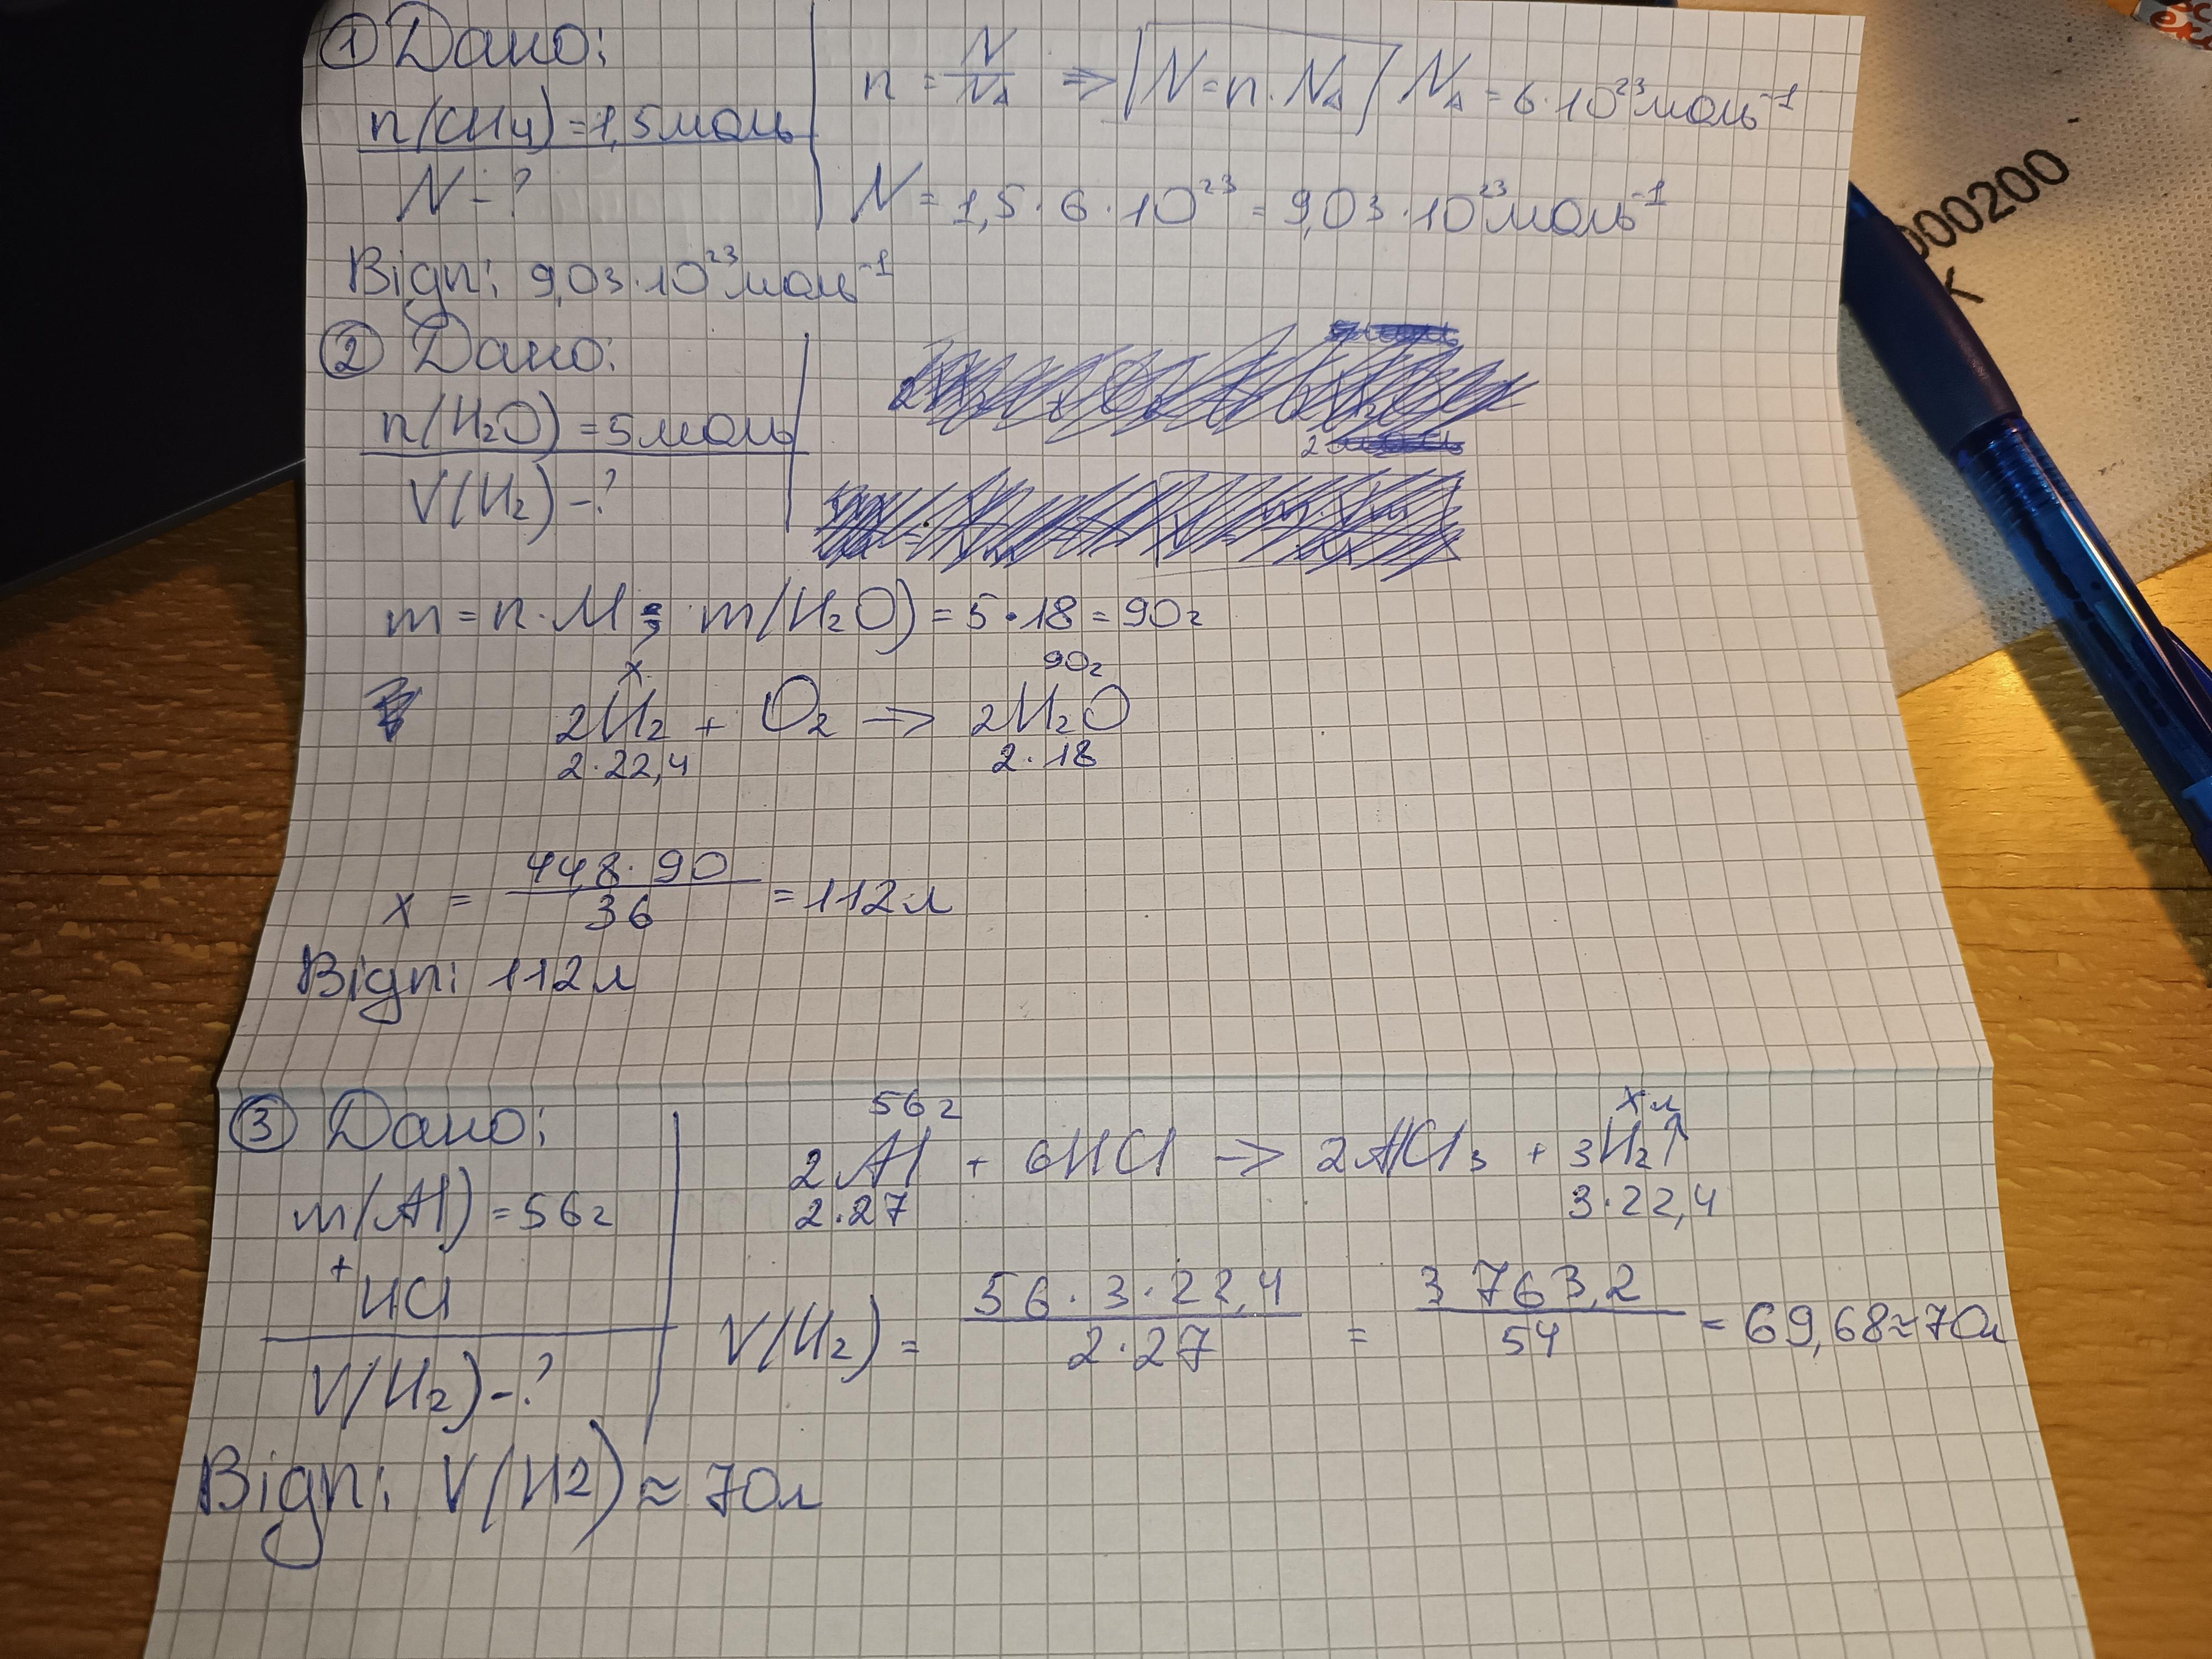 ① Дано:
n(CH₄) = 1,5 моль
N - ?
n = N/Nᴀ => N = n · Nᴀ Nᴀ = 6·10²³ моль⁻¹
N = 1,5 · 6 · 10²³ = 9,03 · 10²³ моль⁻¹
Відп: 9,03 · 10²³ моль⁻¹
② Дано:
n(H₂O) = 5 моль
V(H₂) - ?
m = n · M; m(H₂O) = 5 · 18 = 90г
x 90г
2H₂ + O₂ -> 2H₂O
2·22,4 2·18
x = 44,8 · 90 / 36 = 112 л
Відп: 112 л
③ Дано:
m(Al) = 56г
+ HCl
V(H₂) - ?
56г x л
2Al + 6HCl -> 2AlCl₃ + 3H₂↑
2·27 3·22,4
V(H₂) = 56 · 3 · 22,4 / 2 · 27 = 3763,2 / 54 = 69,68 ≈ 70л
Відп: V(H2) ≈ 70л
000200
K